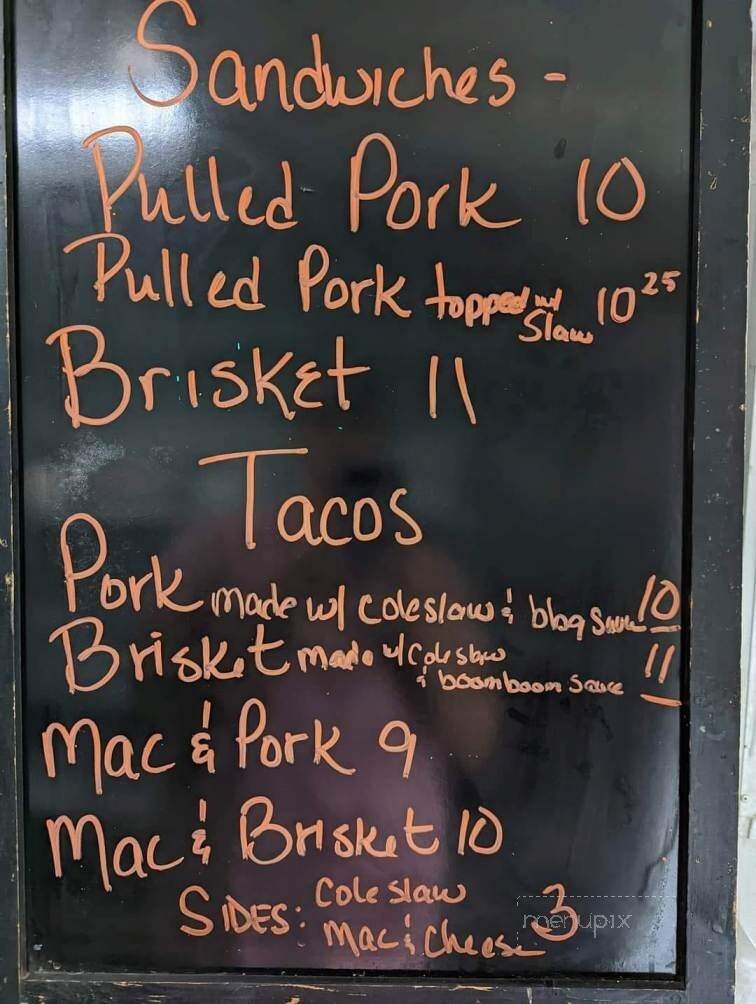 Sandwiches -
Pulled Pork 10
Pulled Pork topped w/ Slaw 10 25
Brisket 11
Tacos
Pork made w/ Coleslaw & bbq Sauce 10
Brisket made w/ Coleslaw
& boomboom Sauce 11
Mac & Pork 9
Mac & Brisket 10
SIDES: Coleslaw
Mac & Cheese 3
menupix